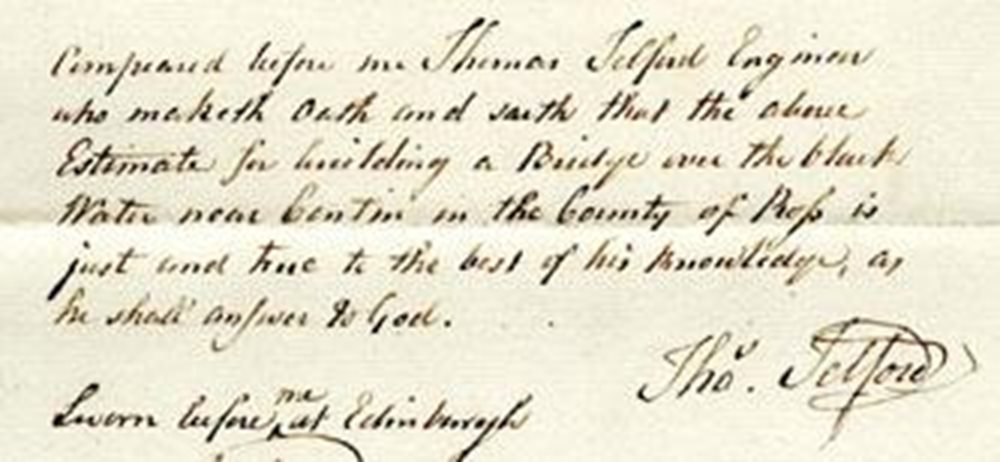 Compeared before me Thomas Telford Engineer
who maketh Oath and saith that the above
Estimate for building a Bridge over the black
Water near Contin in the County of Roſs is
just and true to the best of his knowledge, as
he shall anſwer to God.
Thoˢ. Telford
Sworn before me at Edinburgh